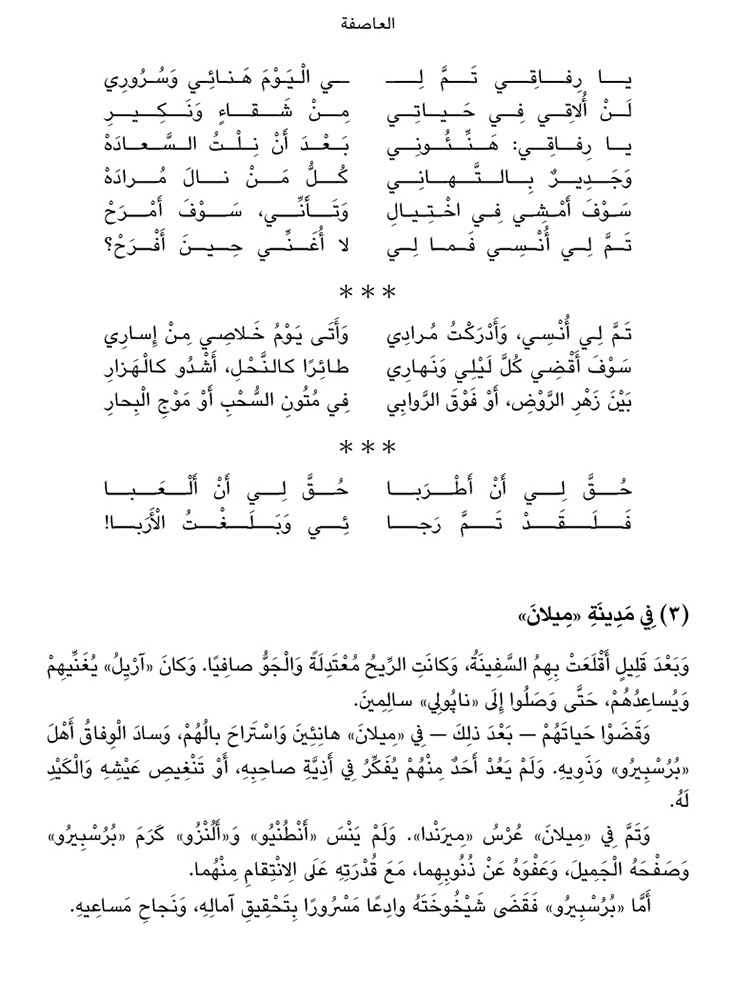 العاصفة
يا رِفاقِي تَمَّ لِـ ـي الْيَوْمَ هَنائِي وَسُرُورِي
لَنْ أُلاقِي فِي حَياتِي مِنْ شَقاءٍ وَنَكِيرِ
يا رِفاقِي: هَنِّئُونِي بَعْدَ أَنْ نِلْتُ السَّعادَهْ
وَجَدِيرٌ بِالتَّهانِي كُلُّ مَنْ نالَ مُرادَهْ
سَوْفَ أَمْشِي فِي اخْتِيالِ وَتَأَنِّي، سَوْفَ أَمْرَحْ
تَمَّ لِي أُنْسِي فَما لِي لا أُغَنِّي حِينَ أَفْرَحْ؟
***
تَمَّ لِي أُنْسِي، وَأَدْرَكْتُ مُرادِي وَأَتَى يَوْمُ خَلاصِي مِنْ إِسارِي
سَوْفَ أَقْضِي كُلَّ لَيْلِي وَنَهارِي طائِرًا كالنَّحْلِ، أَشْدُو كالْهَزارِ
بَيْنَ زَهْرِ الرَّوْضِ، أَوْ فَوْقَ الرَّوابِي فِي مُتُونِ السُّحْبِ أَوْ مَوْجِ الْبِحارِ
***
حُقَّ لِي أَنْ أَطْرَبا حُقَّ لِي أَنْ أَلْعَبا
فَلَقَدْ تَمَّ رَجا ئِي وَبَلَغْتُ الْأَرَبا!
(٣) فِي مَدِينَةِ «مِيلانَ»
وَبَعْدَ قَلِيلٍ أَقْلَعَتْ بِهِمُ السَّفِينَةُ، وَكانَتِ الرِّيحُ مُعْتَدِلَةً وَالْجَوُّ صافِيًا. وَكانَ «آرْيِلُ» يُغَنِّيهِمْ
وَيُساعِدُهُمْ، حَتَّى وَصَلُوا إِلَى «ناپُولِي» سالِمِينَ.
وَقَضَوْا حَياتَهُمْ — بَعْدَ ذلِكَ — فِي «مِيلانَ» هانِئِينَ وَاسْتَراحَ بالُهُمْ، وَسادَ الْوِفاقُ أَهْلَ
«بُرُسْبِيرُو» وَذَوِيهِ. وَلَمْ يَعُدْ أَحَدٌ مِنْهُمْ يُفَكِّرُ فِي أَذِيَّةِ صاحِبِهِ، أَوْ تَنْغِيصِ عَيْشِهِ وَالْكَيْدِ
لَهُ.
وَتَمَّ فِي «مِيلانَ» عُرْسُ «مِيرَنْدا». وَلَمْ يَنْسَ «أَنْطُنْيُو» وَ«أَلُنْزُو» كَرَمَ «بُرُسْبِيرُو»
وَصَفْحَهُ الْجَمِيلَ، وَعَفْوَهُ عَنْ ذُنُوبِهِما، مَعَ قُدْرَتِهِ عَلَى الِانْتِقامِ مِنْهُما.
أَمَّا «بُرُسْبِيرُو» فَقَضَى شَيْخُوخَتَهُ وادِعًا مَسْرُورًا بِتَحْقِيقِ آمالِهِ، وَنَجاحِ مَساعِيهِ.